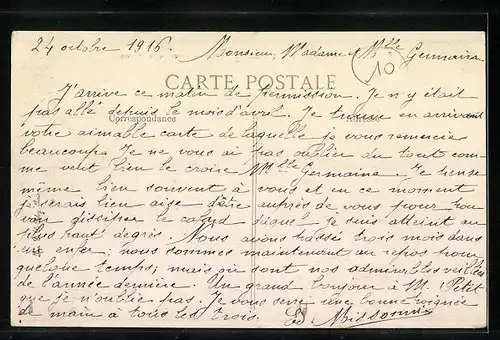 24 octobre 1916. Monsieur, Madame et Mlle Germaine.
10
CARTE POSTALE
J'arrive ce matin de permission. Je n'y était
pas allé depuis le mois d'avril. Je trouve en arrivant
Correspondance
votre aimable carte de laquelle je vous remercie
beaucoup. Je ne vous ai pas oublié du tout com-
me veut bien le croire Mlle Germaine. Je pense
même bien souvent à vous et en ce moment
je serais bien aise d'être auprès de vous pour pou
voir dissiper le cafard duquel je suis atteint au
plus haut degrés. Nous avons passé trois mois dans
un enfer; nous sommes maintenant au repos pour
quelque temps; mais où sont nos admirables veillées
de l'année dernière. Un grand bonjour à M. Petit
que je n'oublie pas. Je vous serre une bonne poignée
de main à tous les trois.